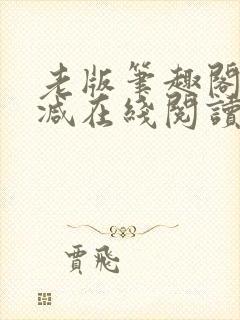 老版筆趣閣
減在綫閱讀
賈飛